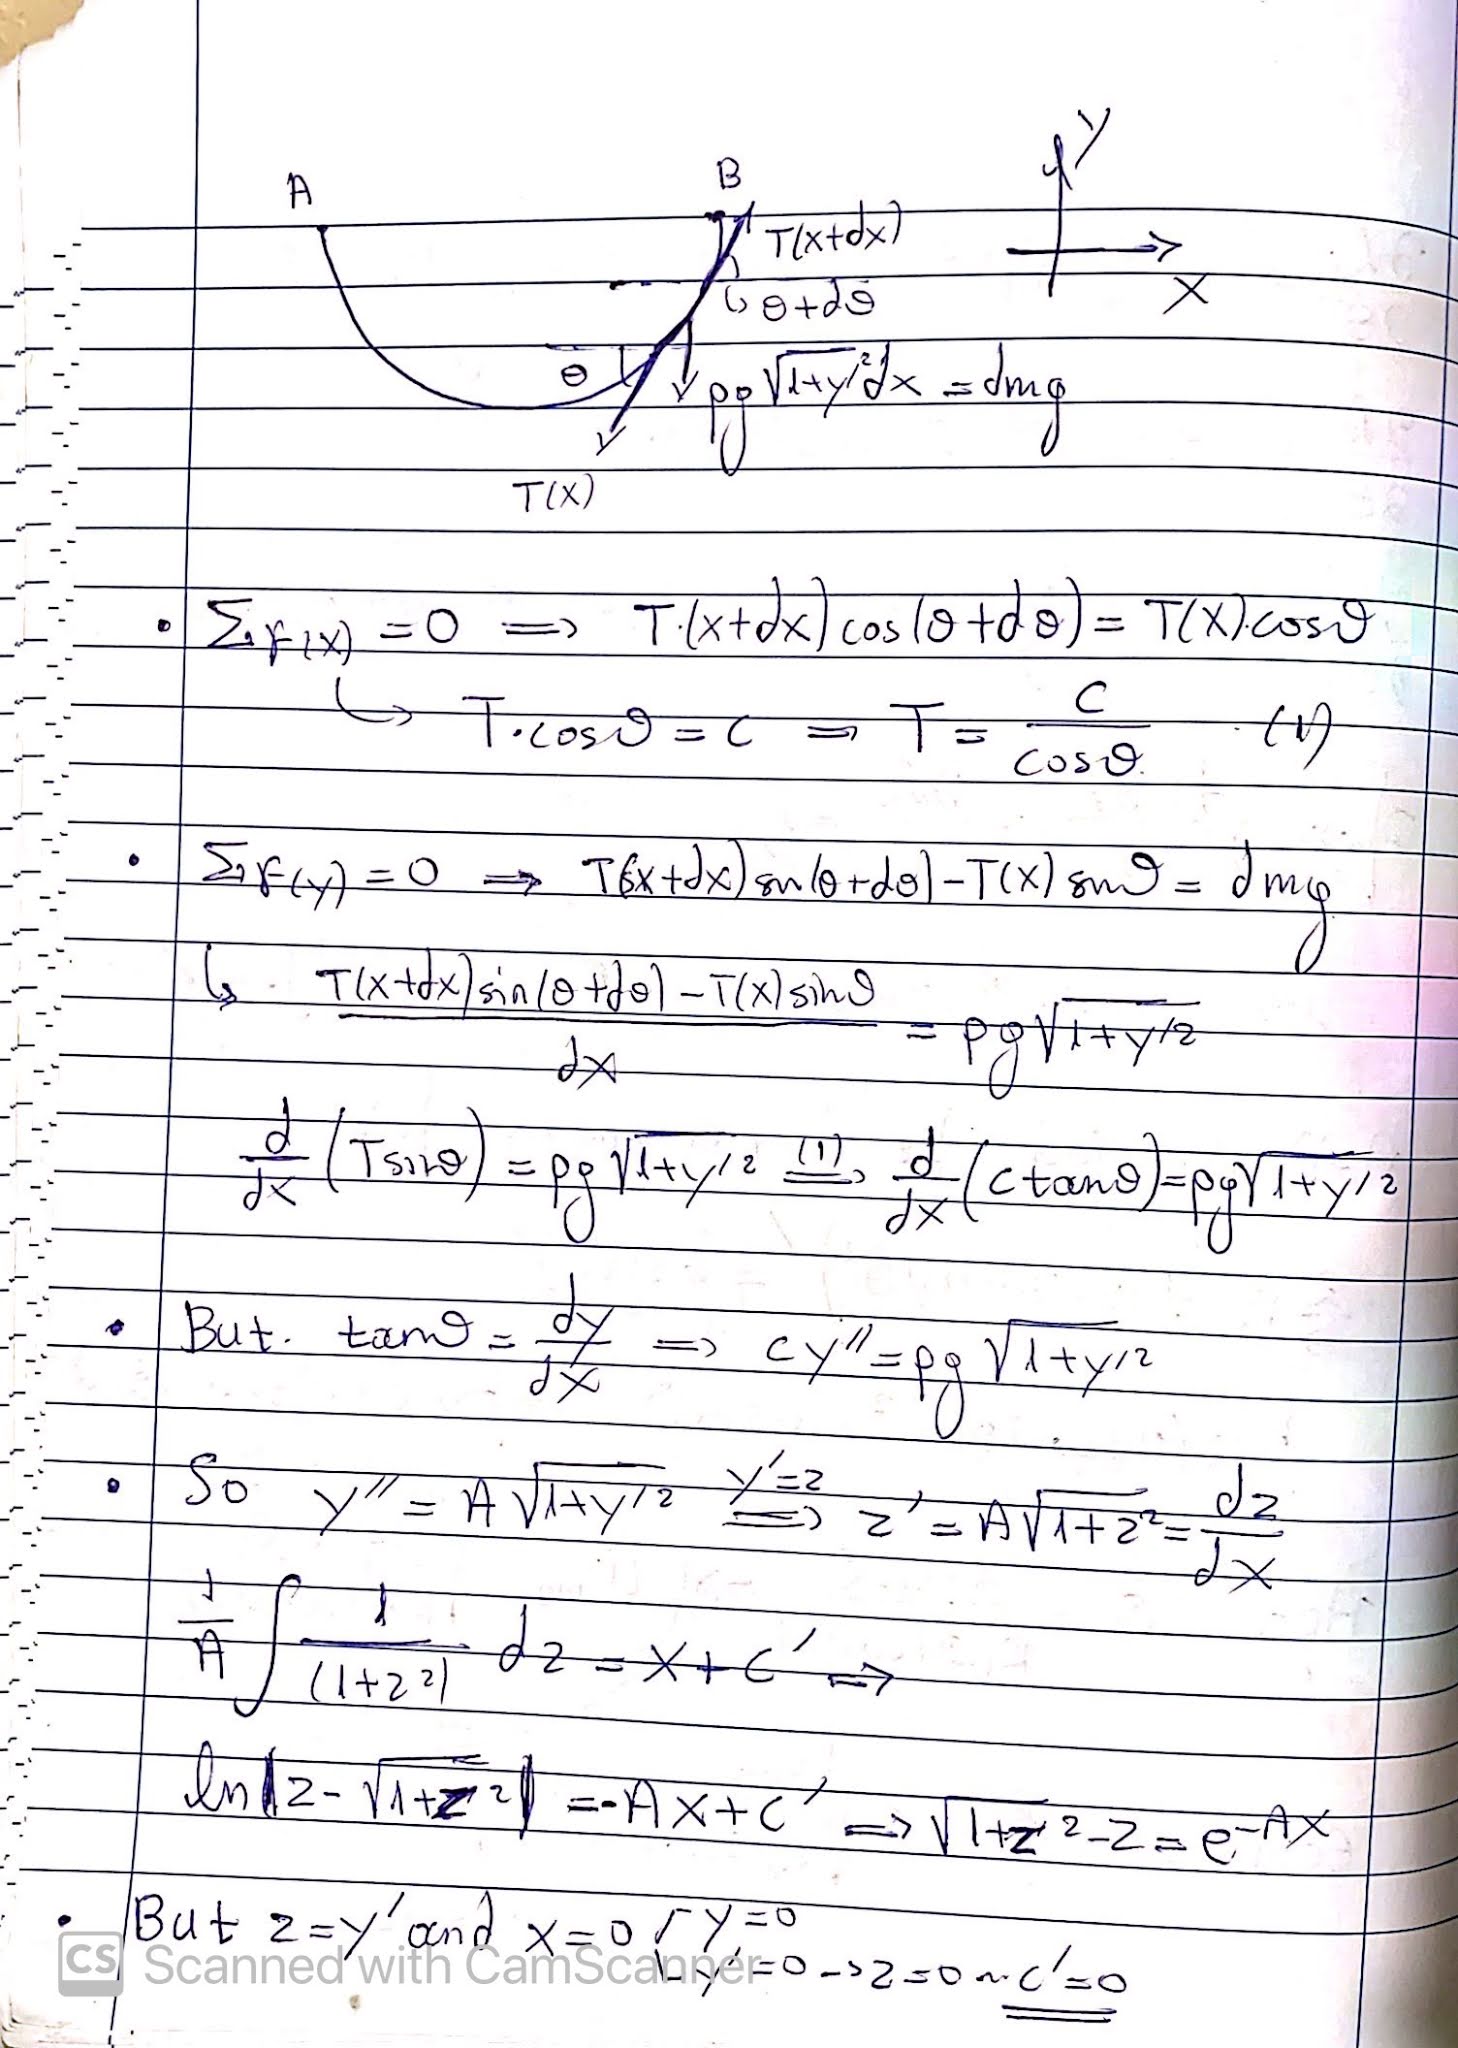 A
B
Y
T(x+dx)
θ+dθ
X
θ
ρg√1+y'²dx = dmg
T(x)
• ΣF(x) = 0 ⟹ T·(x+dx) cos(θ+dθ) = T(x)·cosθ
↳ T·cosθ = c ⟹ T = c/cosθ (1)
• ΣF(y) = 0 ⟹ T(x+dx) sin(θ+dθ) - T(x) sinθ = dmg
↳ (T(x+dx) sin(θ+dθ) - T(x) sinθ)/dx = ρg√1+y'²
d/dx (T sinθ) = ρg√1+y'² ⟹(1) d/dx (c tanθ) = ρg√1+y'²
• But. tanθ = dy/dx ⟹ cy'' = ρg√1+y'²
• So y'' = A√1+y'² ⟹(y'=z) z' = A√1+z² = dz/dx
1/A ∫ 1/(1+z²) dz = x+c' ⟹
ln|z-√1+z²| = -Ax+c' ⟹ √1+z²-z = e^-Ax
• But z=y' and x=0 y=0
y'=0 → z=0 ~ c'=0
CS Scanned with CamScanner